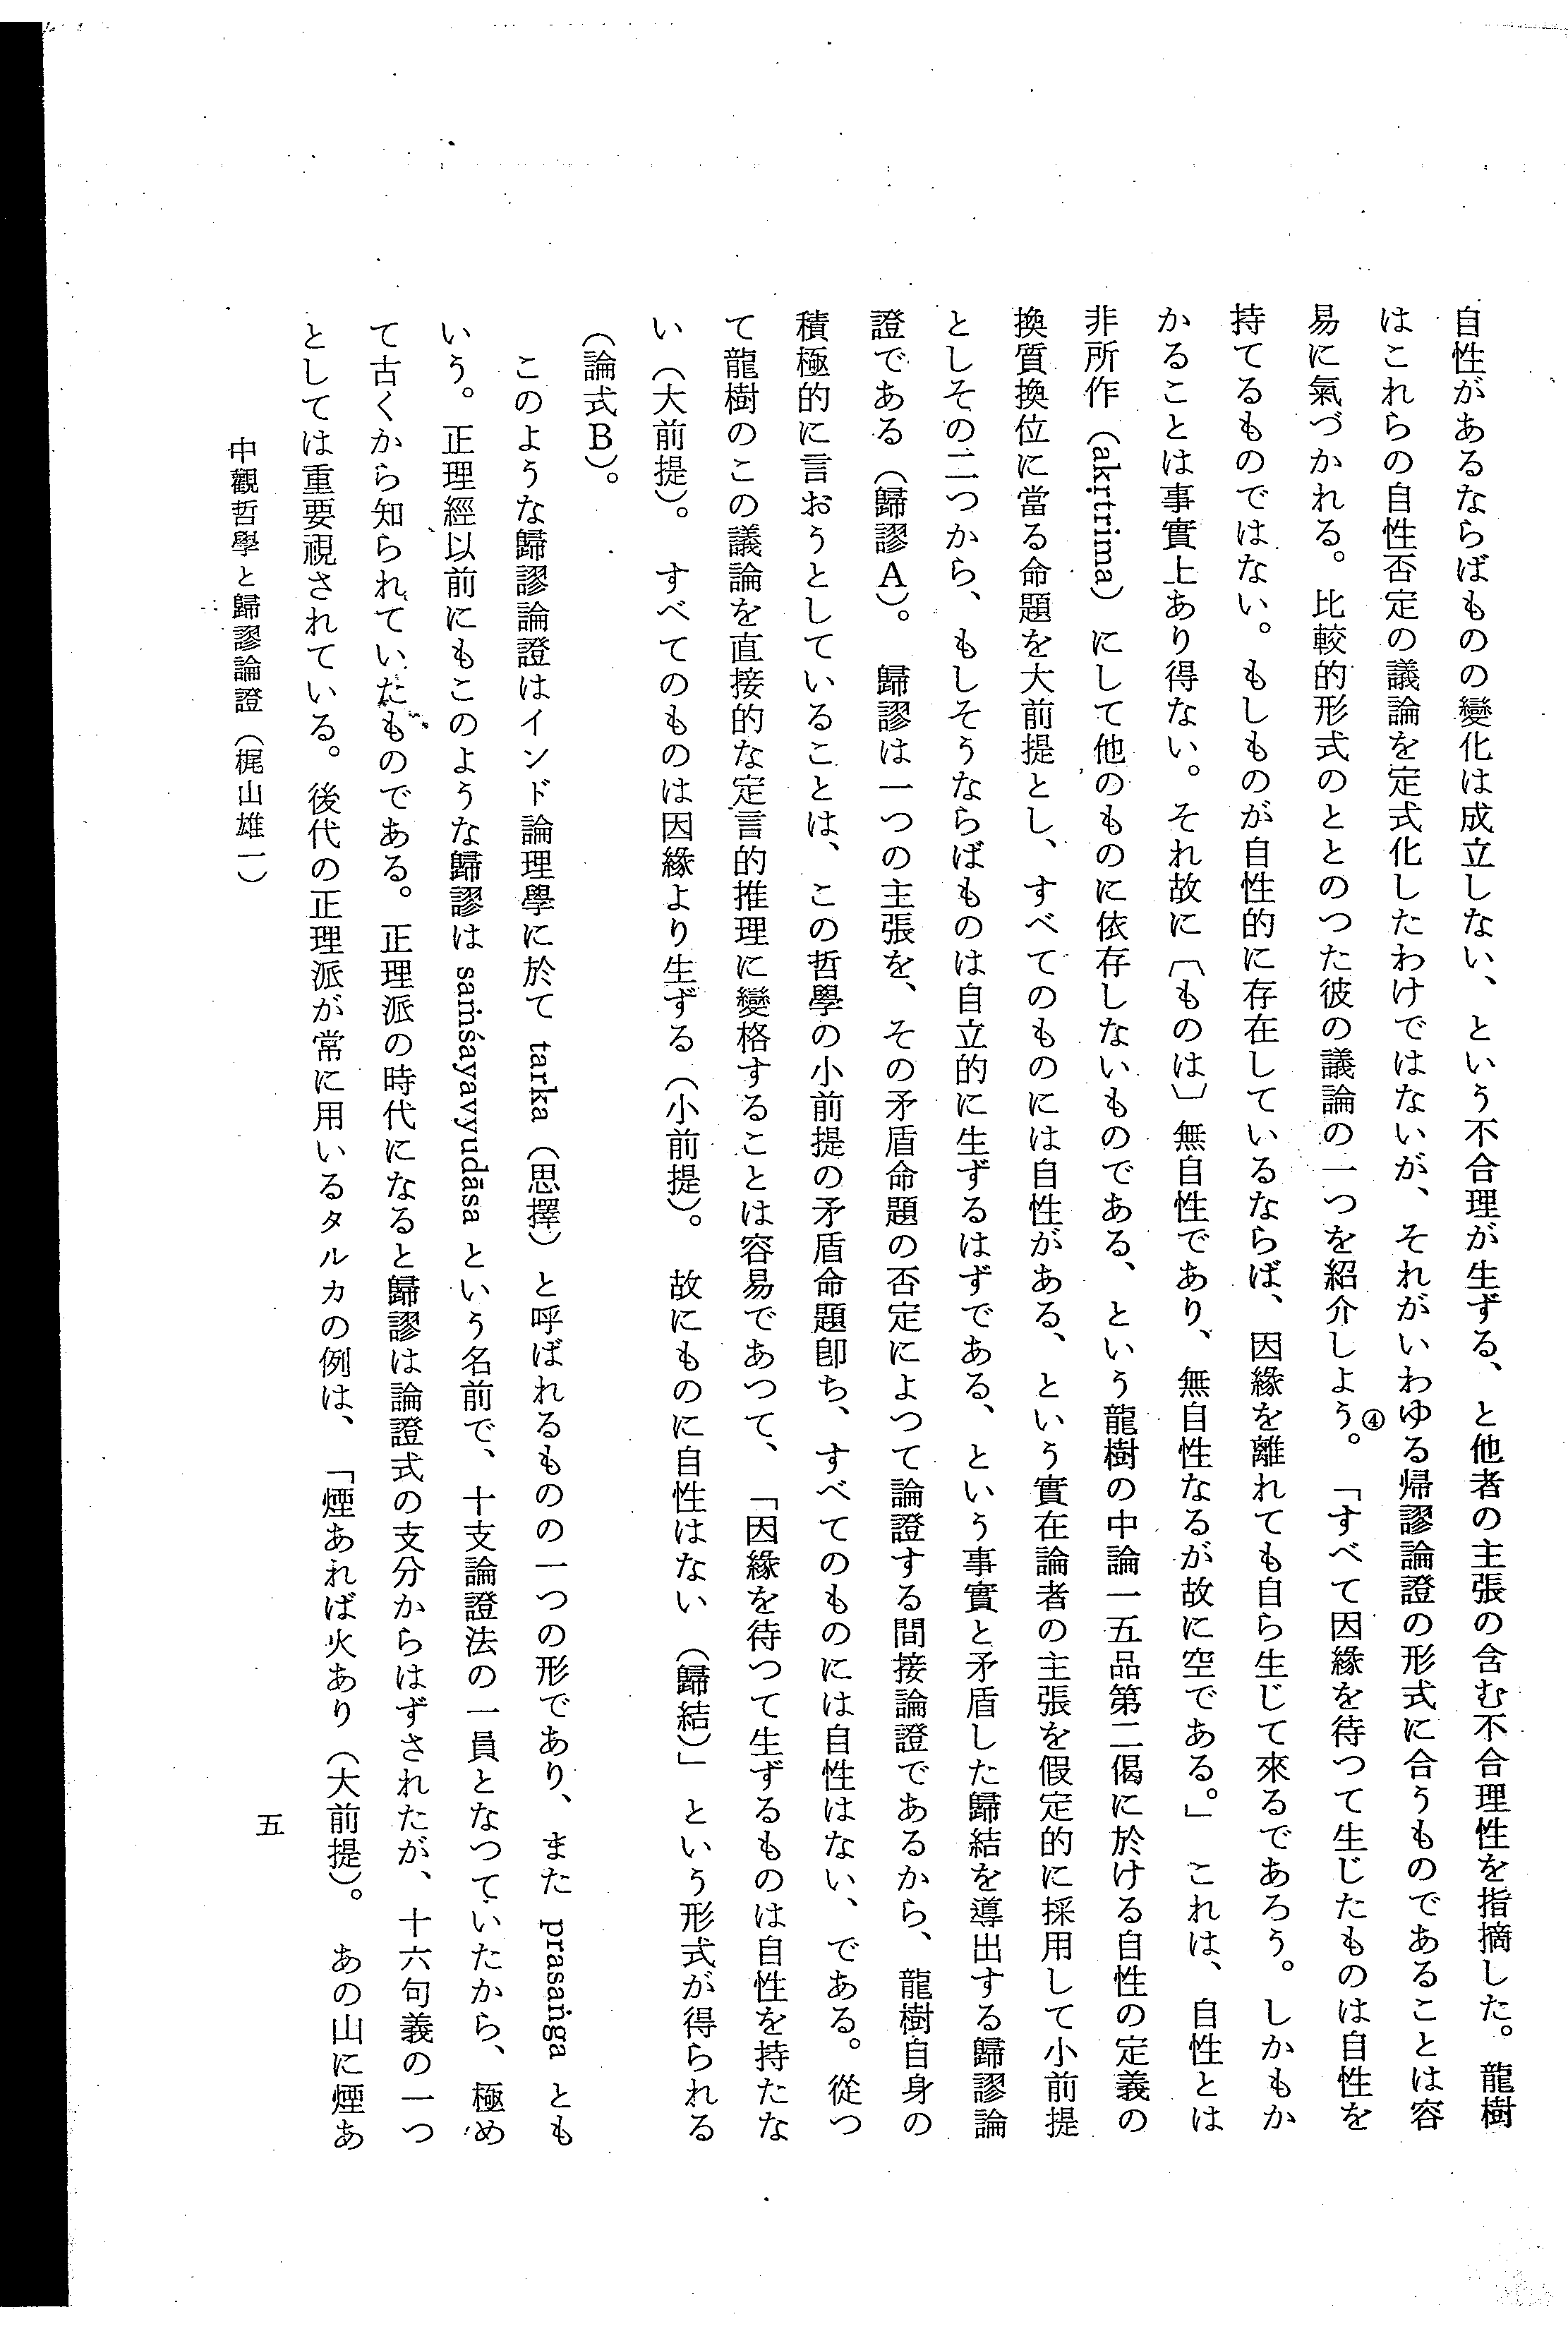 自性があるならばものの變化は成立しない、という不合理が生ずる、と他者の主張の含む不合理性を指摘した。龍樹
はこれらの自性否定の議論を定式化したわけではないが、それがいわゆる帰謬論證の形式に合うものであることは容
易に氣づかれる。比較的形式のととのつた彼の議論の一つを紹介しよう。④「すべて因緣を待つて生じたものは自性を
持てるものではない。もしものが自性的に存在しているならば、因緣を離れても自ら生じて來るであろう。しかもか
かることは事實上あり得ない。それ故に〔ものは〕無自性であり、無自性なるが故に空である。」これは、自性とは
非所作（akṛtrima）にして他のものに依存しないものである、という龍樹の中論一五品第二偈に於ける自性の定義の
換質換位に當る命題を大前提とし、すべてのものには自性がある、という實在論者の主張を假定的に採用して小前提
としその二つから、もしそうならばものは自立的に生ずるはずである、という事實と矛盾した歸結を導出する歸謬論
證である（歸謬A）。歸謬は一つの主張を、その矛盾命題の否定によつて論證する間接論證であるから、龍樹自身の
積極的に言おうとしていることは、この哲學の小前提の矛盾命題卽ち、すべてのものには自性はない、である。從つ
て龍樹のこの議論を直接的な定言的推理に變格することは容易であつて、「因緣を待つて生ずるものは自性を持たな
い（大前提）。すべてのものは因緣より生ずる（小前提）。故にものに自性はない（歸結）」という形式が得られる
（論式B）。
このような歸謬論證はインド論理學に於て tarka（思擇）と呼ばれるものの一つの形であり、また prasaṅga とも
いう。正理經以前にもこのような歸謬は saṁśayavyudāsa という名前で、十支論證法の一員となつていたから、極め
て古くから知られていたものである。正理派の時代になると歸謬は論證式の支分からはずされたが、十六句義の一つ
としては重要視されている。後代の正理派が常に用いるタルカの例は、「煙あれば火あり（大前提）。あの山に煙あ
中觀哲學と歸謬論證（梶山雄一）
五